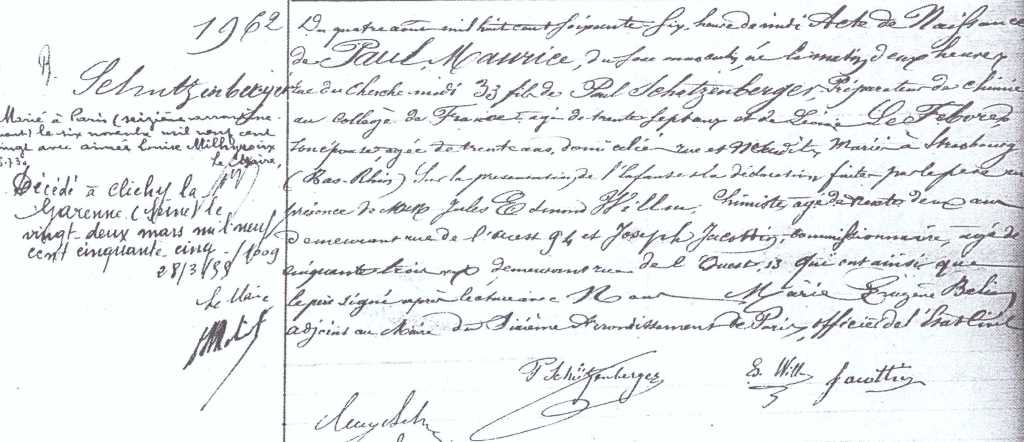 1962
B.
Schutzenberger
Marié à Paris (seizième arrondisse-
ment) le six novembre mil neuf cent
vingt avec aimée Louise
Le Maire,
Décédé à Clichy la
Garenne (Seine) le
vingt-deux mars mil neuf
cent cinquante cinq ./.
28/3/55
Le Maire
Du quatre août mil huit cent soixante-six, heure de midi Acte de Naissance
de Paul Maurice, du sexe masculin, né le matin, deux heures
rue du Cherche-midi 33 fils de Paul Schutzenberger, Préparateur de Chimie
au Collège de France, agé de trente sept ans et de Le Feborex
son épouse, agée de trente ans, domiciliés rue et Mariés à Strasbourg
(Bas-Rhin) Sur la présentation de l'enfant et la déclaration faites par le père en
présence de MM. Jules Edmond Willm, Chimiste, agé de trente deux ans
demeurant rue de l'ouest 94 et Joseph commissionnaire, agé de
cinquante trois ans demeurant rue de l'Ouest, 13 Qui ont ainsi que
le père signé après lecture avec Nous Marie Eugène
adjoint au Maire du Sixième Arrondissement de Paris, officier de l'Etat Civil
P Schützenberger E. Willm